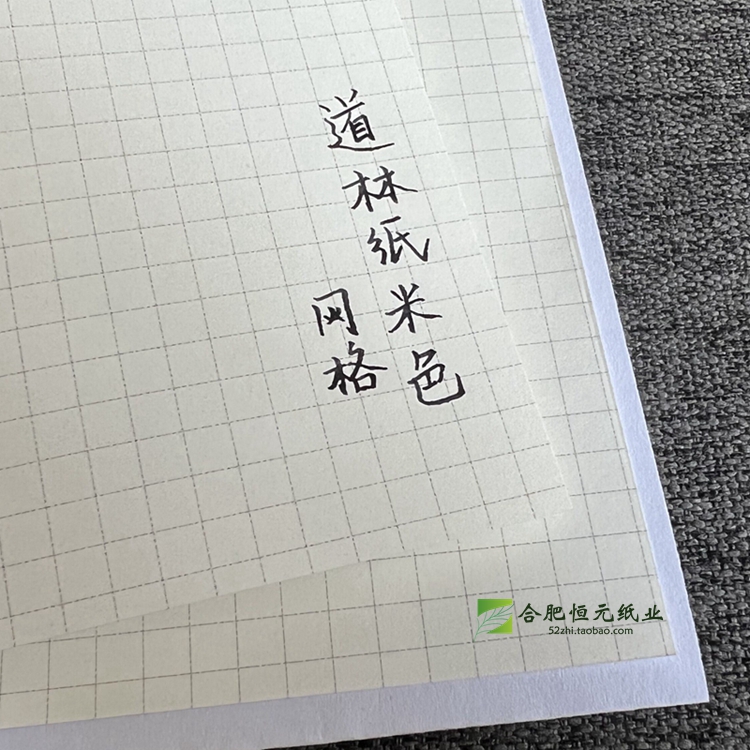 道林纸米色
网格
合肥恒元纸业
52zhi.taobao.com